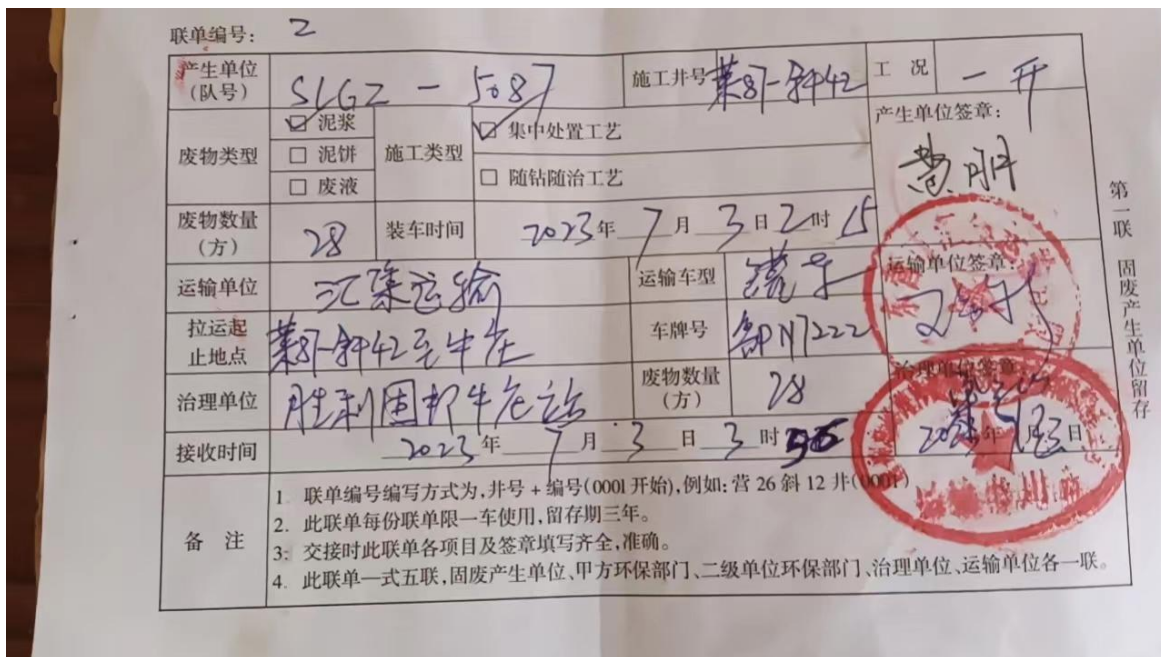 联单编号: 2
产生单位(队号) SLGZ - 5087 施工井号 莱87-斜42 工况 一开
废物类型 ☑ 泥浆 □ 泥饼 □ 废液 施工类型 ☑ 集中处置工艺 □ 随钻随治工艺 产生单位签章:
废物数量(方) 28 装车时间 2023年 7月 3日 2时 15
运输单位 汇集运输 运输车型 罐车 运输单位签章:
拉运起止地点 莱87-斜42至牛庄 车牌号
治理单位 胜利固邦牛庄站 废物数量(方) 28 治理单位签章:
接收时间 2023年 7月 3日 3时 年 月 日
备注
1. 联单编号编写方式为,井号+编号(0001开始),例如:营26斜12井(0001)
2. 此联单每份联单限一车使用,留存期三年。
3: 交接时此联单各项目及签章填写齐全,准确。
4. 此联单一式五联,固废产生单位、甲方环保部门、二级单位环保部门、治理单位、运输单位各一联。
第一联 固废产生单位留存